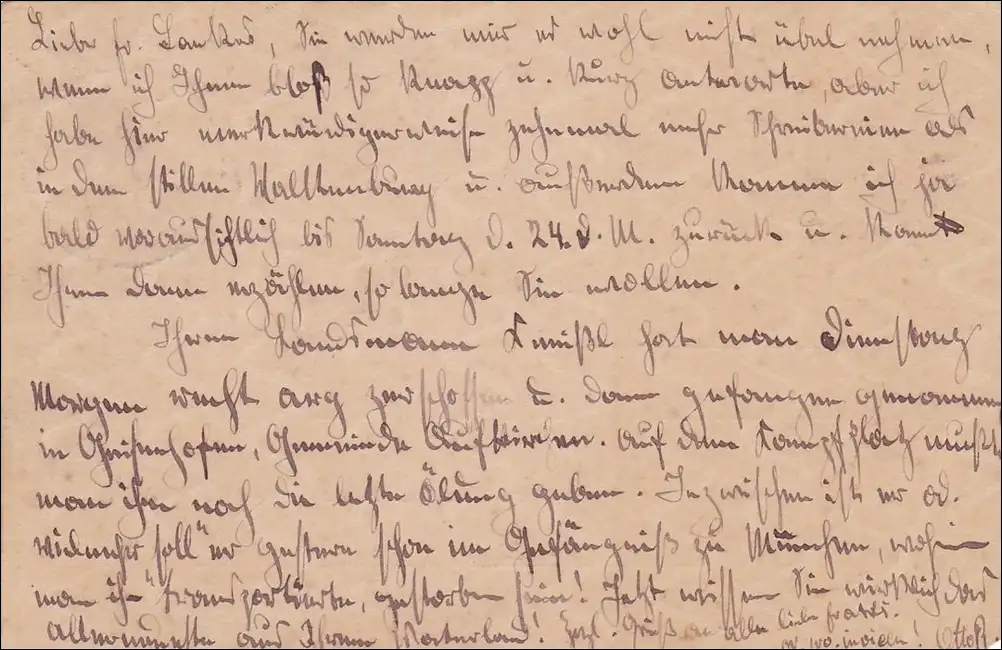 Lieber Fr. Lankes, Sie werden mir es wohl nicht übel nehmen,
wenn ich Ihnen bloß so knapp u. kurz antworte, aber ich
habe hier merkwürdigerweise zehnmal mehr Schreibereien als
in dem stillen u. außerdem komme ich ja
bald voraussichtlich bis Samstag d. 24. d. M. zurück u. kann
Ihnen dann erzählen, so lange Sie wollen.
Ihren Landsmann Kneißl hat man Dienstag
Morgen recht arg zerschossen u. dann gefangen genommen
in Geisenhofen, Gemeinde Aufkirchen. Auf dem Kampfplatz mußte
man ihm noch die letzte Ölung geben. Inzwischen ist er od.
vielmehr "soll" er gestern schon im Gefängniß zu München, wohin
man ihn transportierte, gestorben sein! Jetzt wissen Sie wirklich das
allerneueste aus Ihrem Vaterland! Herzl. Gruß an alle liebe fratres.